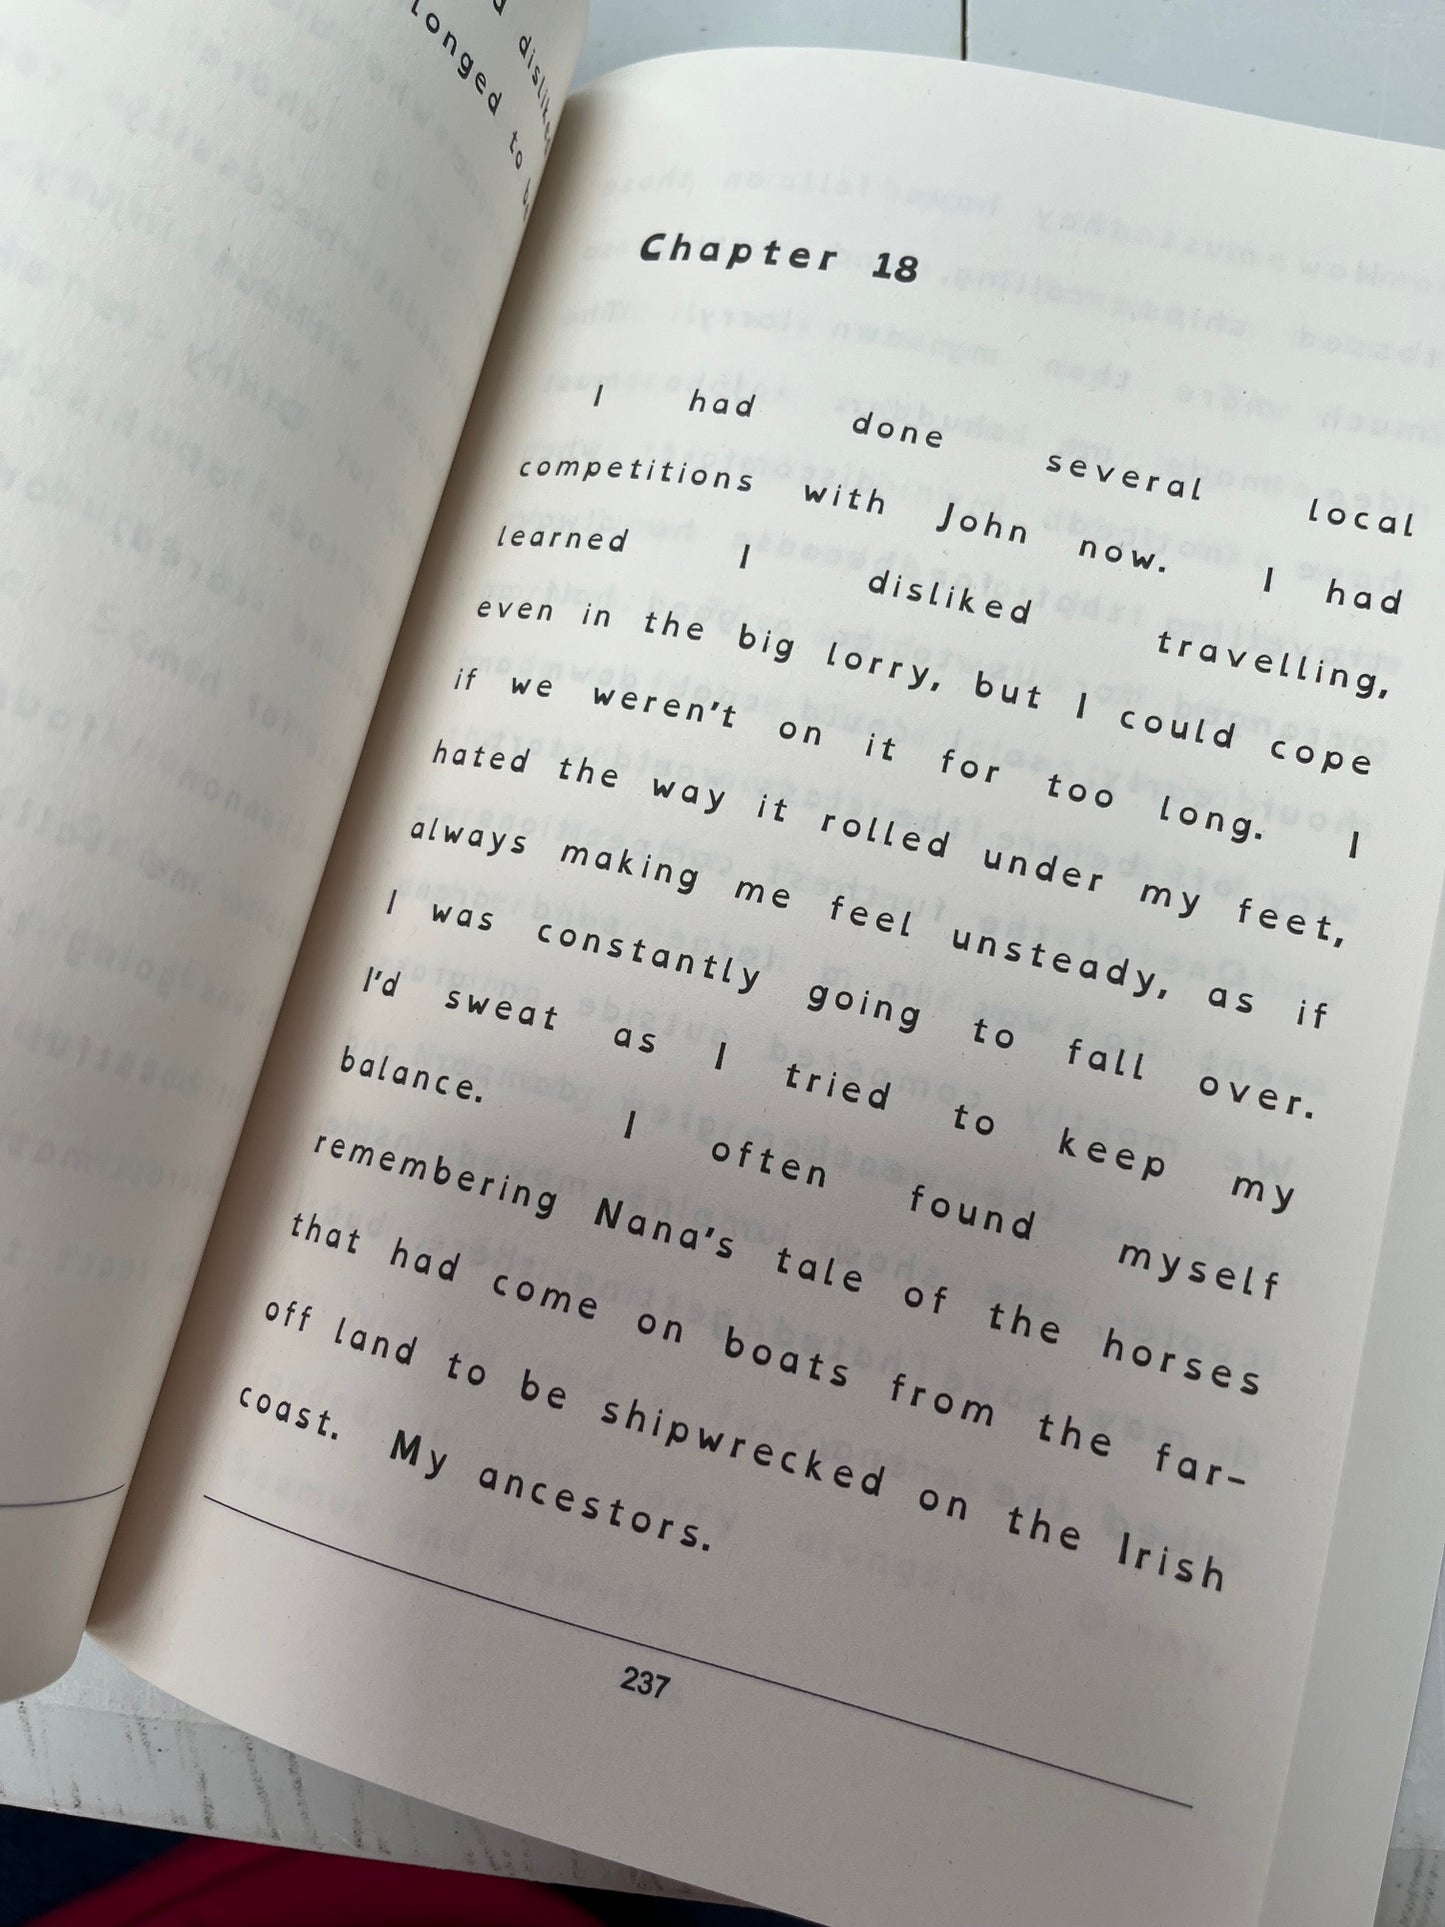 disliked
longed to
Chapter 18
I had done several local
competitions with John now. I had
learned I disliked travelling,
even in the big lorry, but I could cope
if we weren't on it for too long. I
hated the way it rolled under my feet,
always making me feel unsteady, as if
I was constantly going to fall over.
I'd sweat as I tried to keep my
balance. I often found myself
remembering Nana's tale of the horses
that had come on boats from the far-
off land to be shipwrecked on the Irish
coast. My ancestors.
237